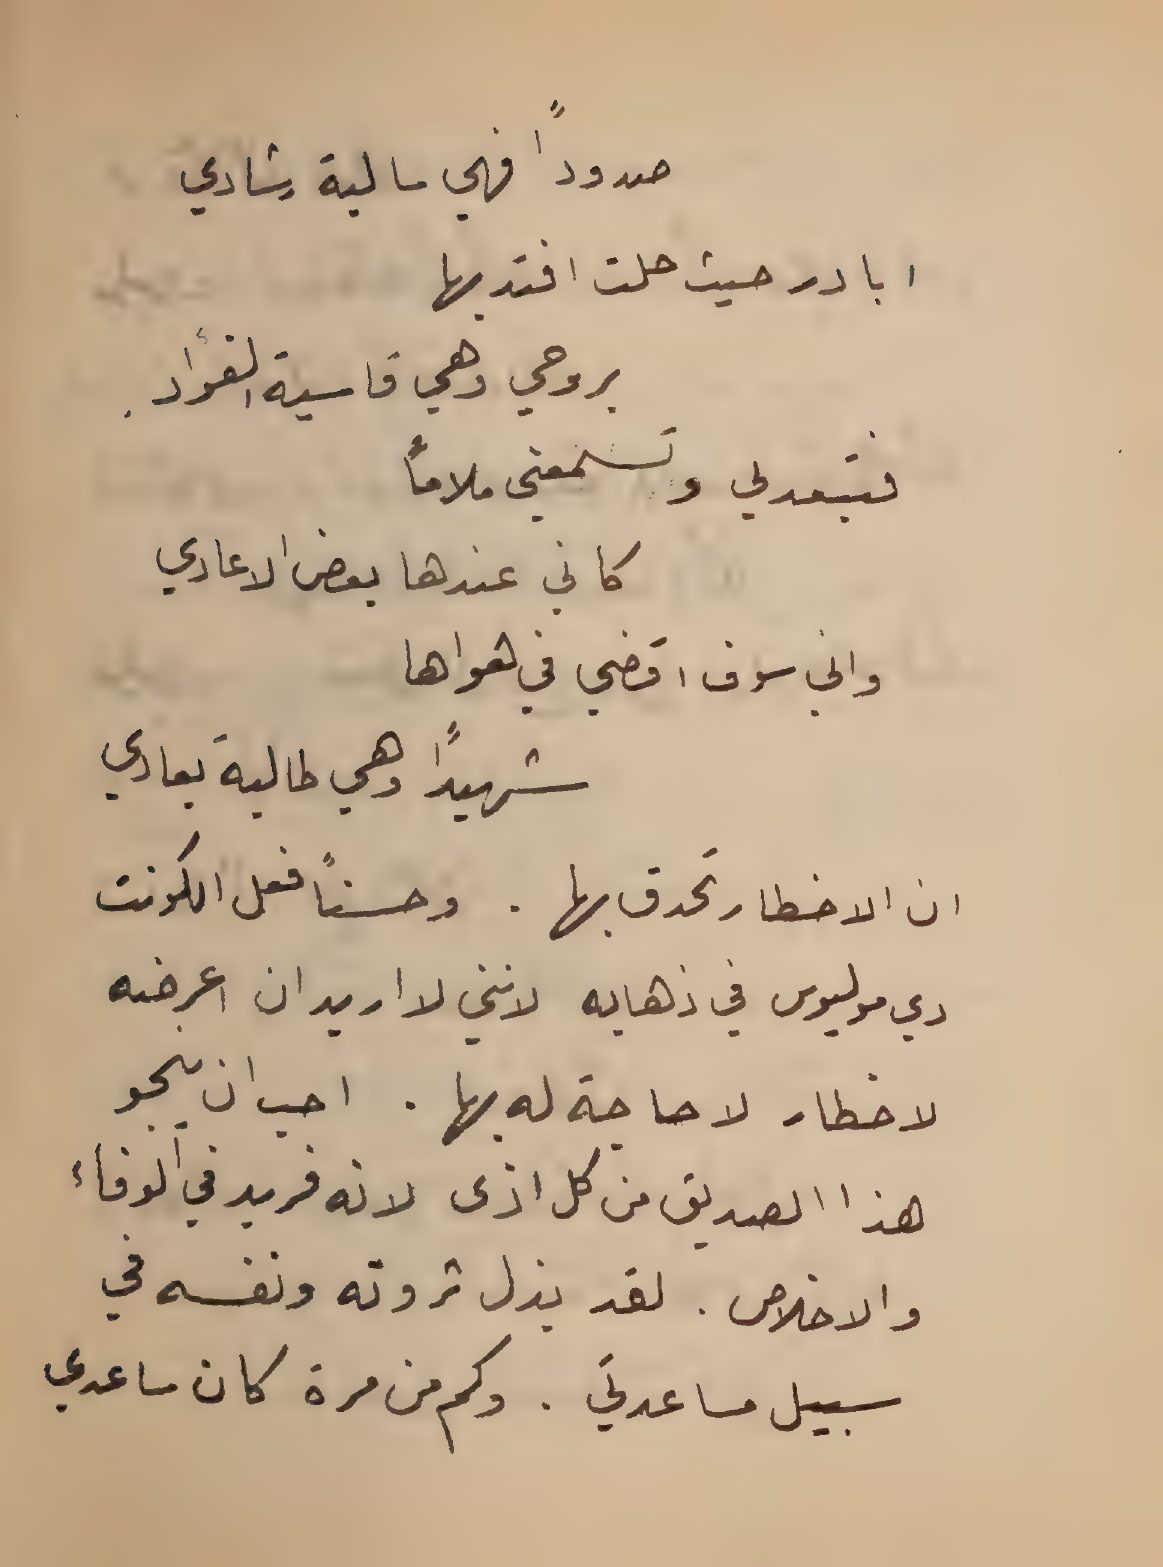 صدوداً فهي سالبة رشادي
ابادر حيث حلت افتديها
بروحي وهي قاسية الفؤاد.
فتبعدني وتسمعني ملاماً
كاني عندها بعض الاعادي
واني سوف اقضي في هواها
شهيداً وهي طالبة بعادي
ان الاخطار تحدق بها . وحسناً فعل الكونت
دي موليوس في ذهابه لانني لا اريد ان اعرضه
لاخطار لا حاجة له بها . احب ان ينجو
هذا الصديق من كل اذى لانه فريد في الوفاء
والاخلاص . لقد بذل ثروته ونفسه في
سبيل مساعدتي . وكم من مرة كان ساعدي